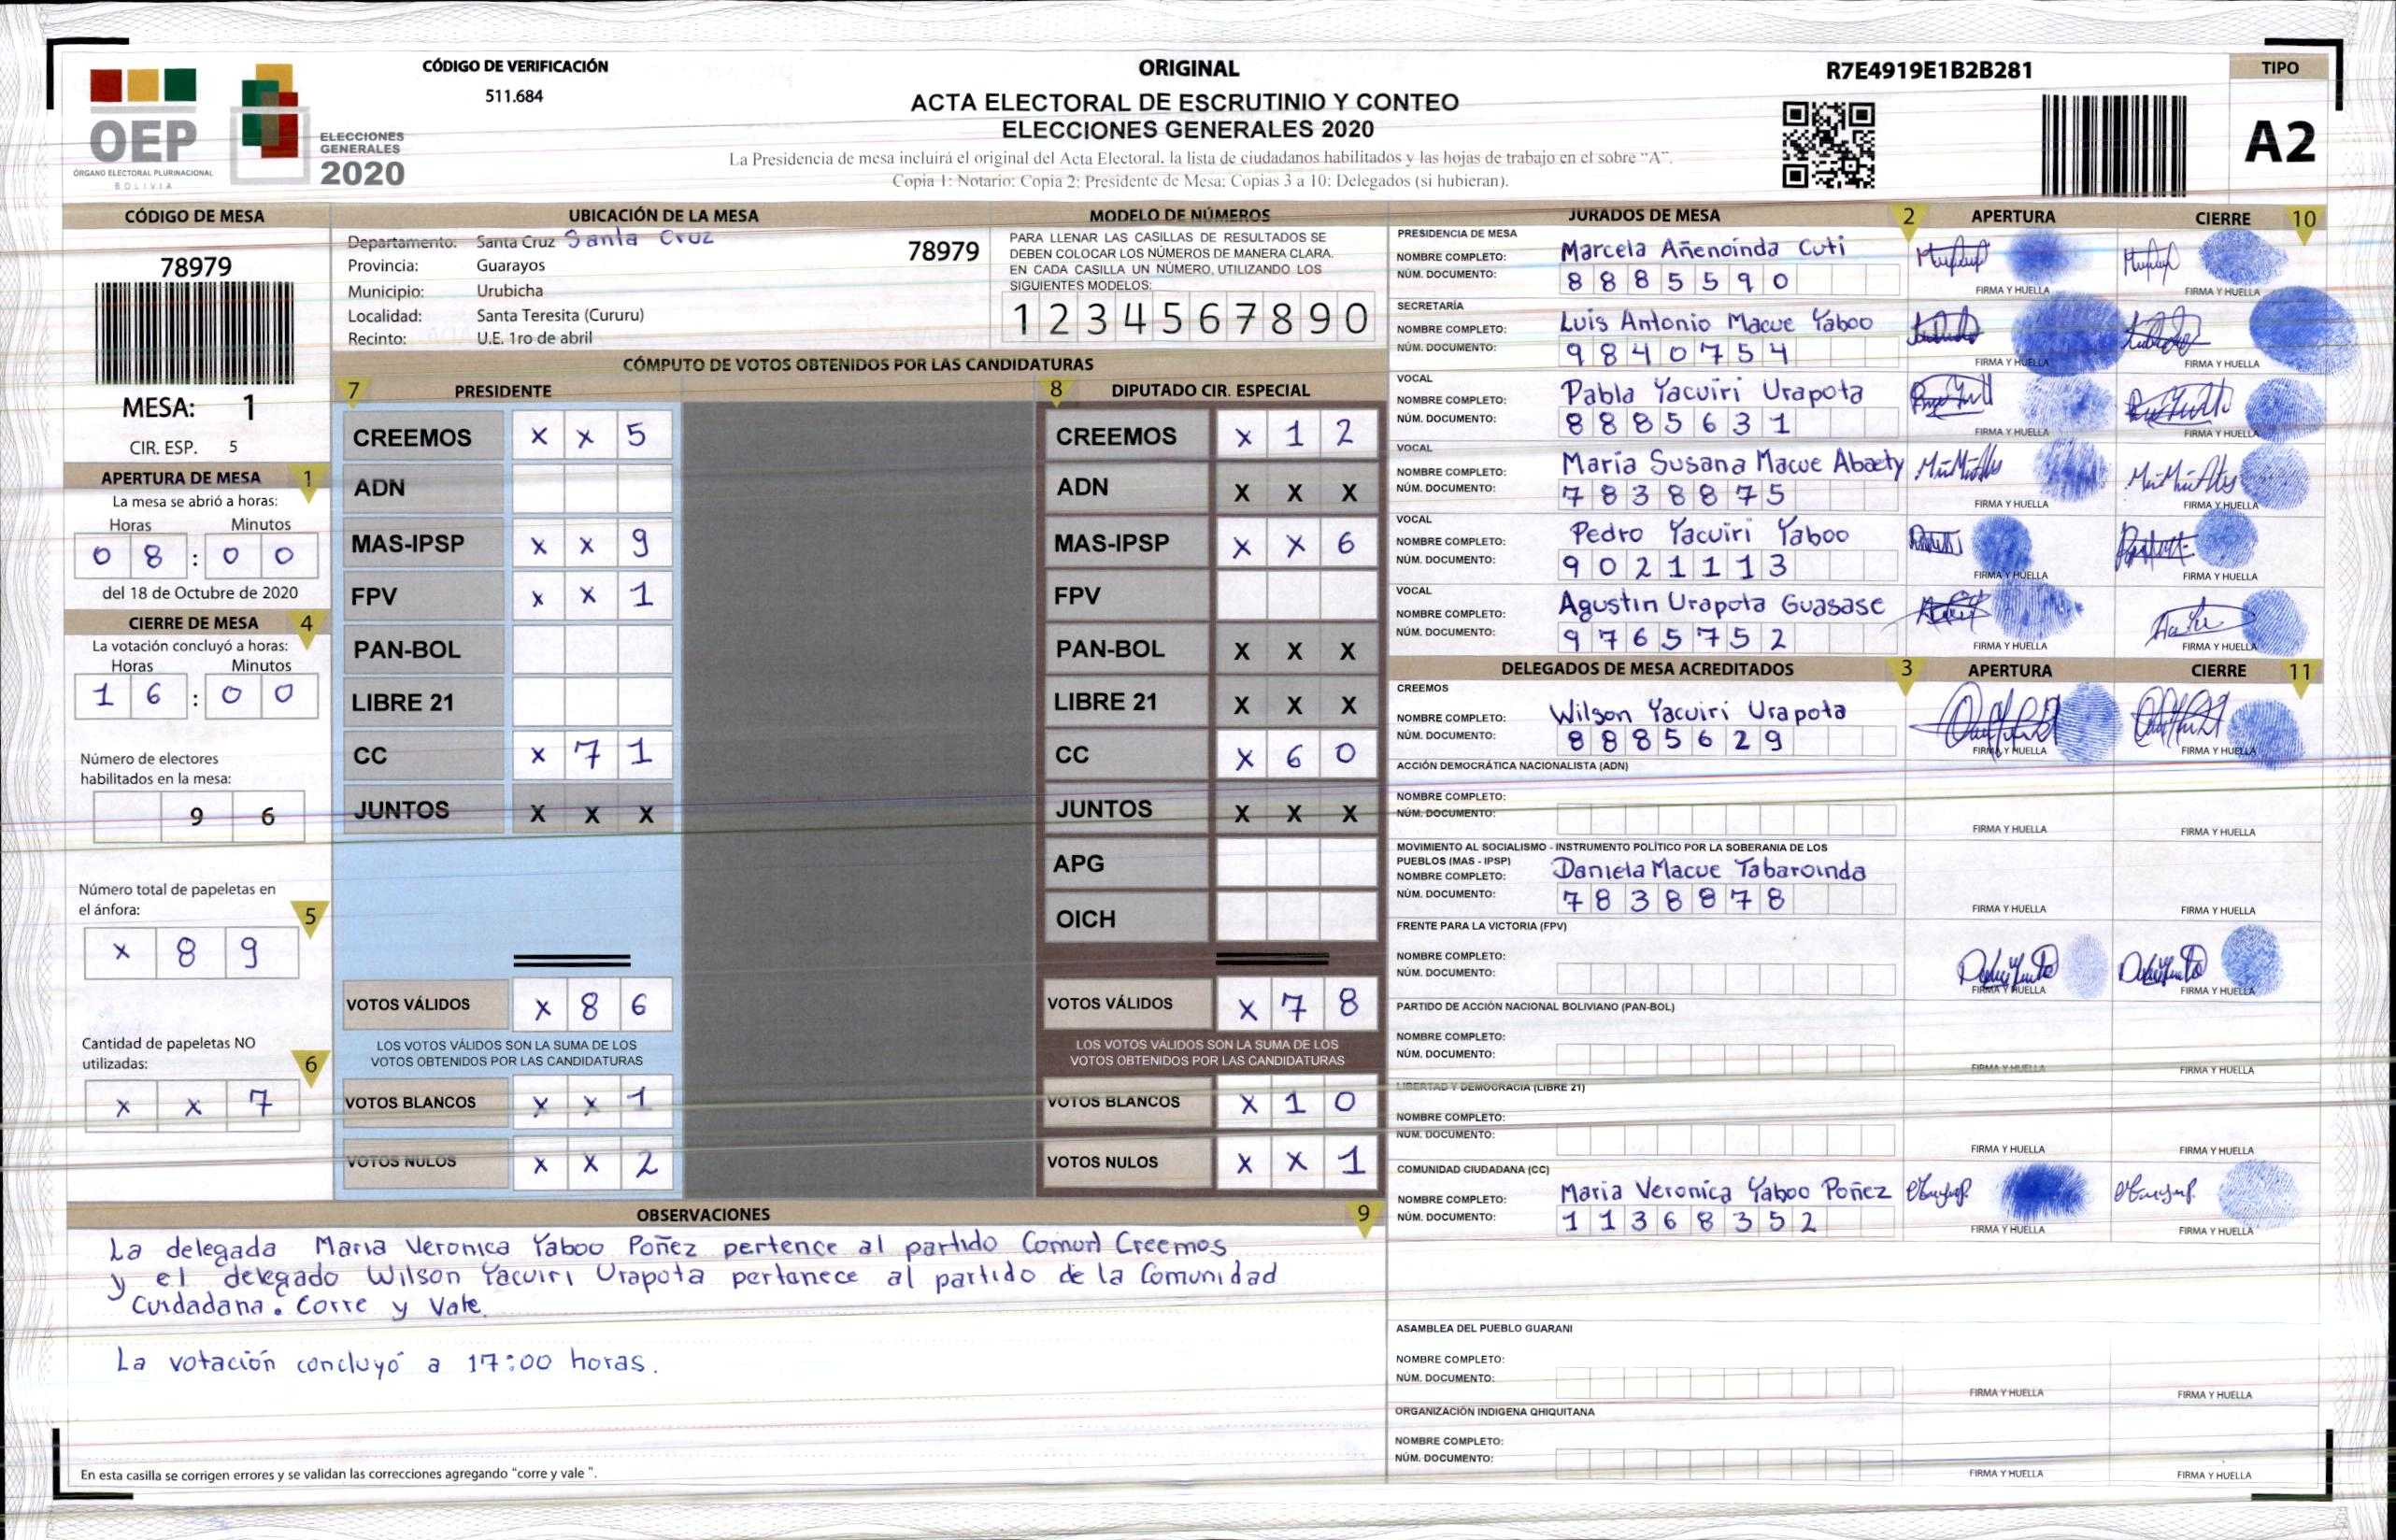 CÓDIGO DE VERIFICACIÓN
511.684
OEP
ÓRGANO ELECTORAL PLURINACIONAL
BOLIVIA
ELECCIONES
GENERALES
2020
ORIGINAL
ACTA ELECTORAL DE ESCRUTINIO Y CONTEO
ELECCIONES GENERALES 2020
La Presidencia de mesa incluirá el original del Acta Electoral, la lista de ciudadanos habilitados y las hojas de trabajo en el sobre "A".
Copia 1: Notario; Copia 2: Presidente de Mesa; Copias 3 a 10: Delegados (si hubieran).
R7E4919E1B2B281
TIPO
A2
CÓDIGO DE MESA
78979
MESA: 1
CIR. ESP. 5
APERTURA DE MESA 1
La mesa se abrió a horas:
Horas Minutos
0 8 : 0 0
del 18 de Octubre de 2020
CIERRE DE MESA 4
La votación concluyó a horas:
Horas Minutos
1 6 : 0 0
Número de electores
habilitados en la mesa:
9 6
Número total de papeletas en
el ánfora: 5
x 8 9
Cantidad de papeletas NO
utilizadas: 6
x x 7
UBICACIÓN DE LA MESA
Departamento: Santa Cruz Santa Cruz
78979
Provincia: Guarayos
Municipio: Urubicha
Localidad: Santa Teresita (Cururu)
Recinto: U.E. 1ro de abril
MODELO DE NÚMEROS
PARA LLENAR LAS CASILLAS DE RESULTADOS SE
DEBEN COLOCAR LOS NÚMEROS DE MANERA CLARA.
EN CADA CASILLA UN NÚMERO, UTILIZANDO LOS
SIGUIENTES MODELOS:
1 2 3 4 5 6 7 8 9 0
CÓMPUTO DE VOTOS OBTENIDOS POR LAS CANDIDATURAS
7 PRESIDENTE
CREEMOS x x 5
ADN
MAS-IPSP x x 9
FPV x x 1
PAN-BOL
LIBRE 21
CC x 7 1
JUNTOS X X X
VOTOS VÁLIDOS x 8 6
LOS VOTOS VÁLIDOS SON LA SUMA DE LOS
VOTOS OBTENIDOS POR LAS CANDIDATURAS
VOTOS BLANCOS x x 1
VOTOS NULOS x x 2
8 DIPUTADO CIR. ESPECIAL
CREEMOS x 1 2
ADN X X X
MAS-IPSP x x 6
FPV
PAN-BOL X X X
LIBRE 21 X X X
CC x 6 0
JUNTOS X X X
APG
OICH
VOTOS VÁLIDOS x 7 8
LOS VOTOS VÁLIDOS SON LA SUMA DE LOS
VOTOS OBTENIDOS POR LAS CANDIDATURAS
VOTOS BLANCOS x 1 0
VOTOS NULOS x x 1
OBSERVACIONES 9
La delegada Maria Veronica Yaboo Poñez pertence al partido Comun Creemos
y el delegado Wilson Yacuiri Urapota pertanece al partido de la Comunidad
Cuidadana. Corre y Vale.
La votación concluyó a 17:00 horas.
En esta casilla se corrigen errores y se validan las correcciones agregando "corre y vale ".
JURADOS DE MESA 2 APERTURA CIERRE 10
PRESIDENCIA DE MESA
NOMBRE COMPLETO: Marcela Añenoinda Cuti
NÚM. DOCUMENTO: 8 8 8 5 5 9 0
FIRMA Y HUELLA FIRMA Y HUELLA
SECRETARÍA
NOMBRE COMPLETO: Luis Antonio Macue Yaboo
NÚM. DOCUMENTO: 9 8 4 0 7 5 4
FIRMA Y HUELLA FIRMA Y HUELLA
VOCAL
NOMBRE COMPLETO: Pabla Yacuiri Urapota
NÚM. DOCUMENTO: 8 8 8 5 6 3 1
FIRMA Y HUELLA FIRMA Y HUELLA
VOCAL
NOMBRE COMPLETO: Maria Susana Macue Abaety
NÚM. DOCUMENTO: 7 8 3 8 8 7 5
FIRMA Y HUELLA FIRMA Y HUELLA
VOCAL
NOMBRE COMPLETO: Pedro Yacuiri Yaboo
NÚM. DOCUMENTO: 9 0 2 1 1 1 3
FIRMA Y HUELLA FIRMA Y HUELLA
VOCAL
NOMBRE COMPLETO: Agustin Urapota Guasase
NÚM. DOCUMENTO: 9 7 6 5 7 5 2
FIRMA Y HUELLA FIRMA Y HUELLA
DELEGADOS DE MESA ACREDITADOS 3 APERTURA CIERRE 11
CREEMOS
NOMBRE COMPLETO: Wilson Yacuiri Urapota
NÚM. DOCUMENTO: 8 8 8 5 6 2 9
FIRMA Y HUELLA FIRMA Y HUELLA
ACCIÓN DEMOCRÁTICA NACIONALISTA (ADN)
NOMBRE COMPLETO:
NÚM. DOCUMENTO:
FIRMA Y HUELLA FIRMA Y HUELLA
MOVIMIENTO AL SOCIALISMO - INSTRUMENTO POLÍTICO POR LA SOBERANIA DE LOS
PUEBLOS (MAS - IPSP)
NOMBRE COMPLETO: Daniela Macue Tabaroinda
NÚM. DOCUMENTO: 7 8 3 8 8 7 8
FIRMA Y HUELLA FIRMA Y HUELLA
FRENTE PARA LA VICTORIA (FPV)
NOMBRE COMPLETO:
NÚM. DOCUMENTO:
FIRMA Y HUELLA FIRMA Y HUELLA
PARTIDO DE ACCIÓN NACIONAL BOLIVIANO (PAN-BOL)
NOMBRE COMPLETO:
NÚM. DOCUMENTO:
FIRMA Y HUELLA FIRMA Y HUELLA
LIBERTAD Y DEMOCRACIA (LIBRE 21)
NOMBRE COMPLETO:
NÚM. DOCUMENTO:
FIRMA Y HUELLA FIRMA Y HUELLA
COMUNIDAD CIUDADANA (CC)
NOMBRE COMPLETO: Maria Veronica Yaboo Poñez
NÚM. DOCUMENTO: 1 1 3 6 8 3 5 2
FIRMA Y HUELLA FIRMA Y HUELLA
ASAMBLEA DEL PUEBLO GUARANI
NOMBRE COMPLETO:
NÚM. DOCUMENTO:
FIRMA Y HUELLA FIRMA Y HUELLA
ORGANIZACIÓN INDIGENA QHIQUITANA
NOMBRE COMPLETO:
NÚM. DOCUMENTO:
FIRMA Y HUELLA FIRMA Y HUELLA